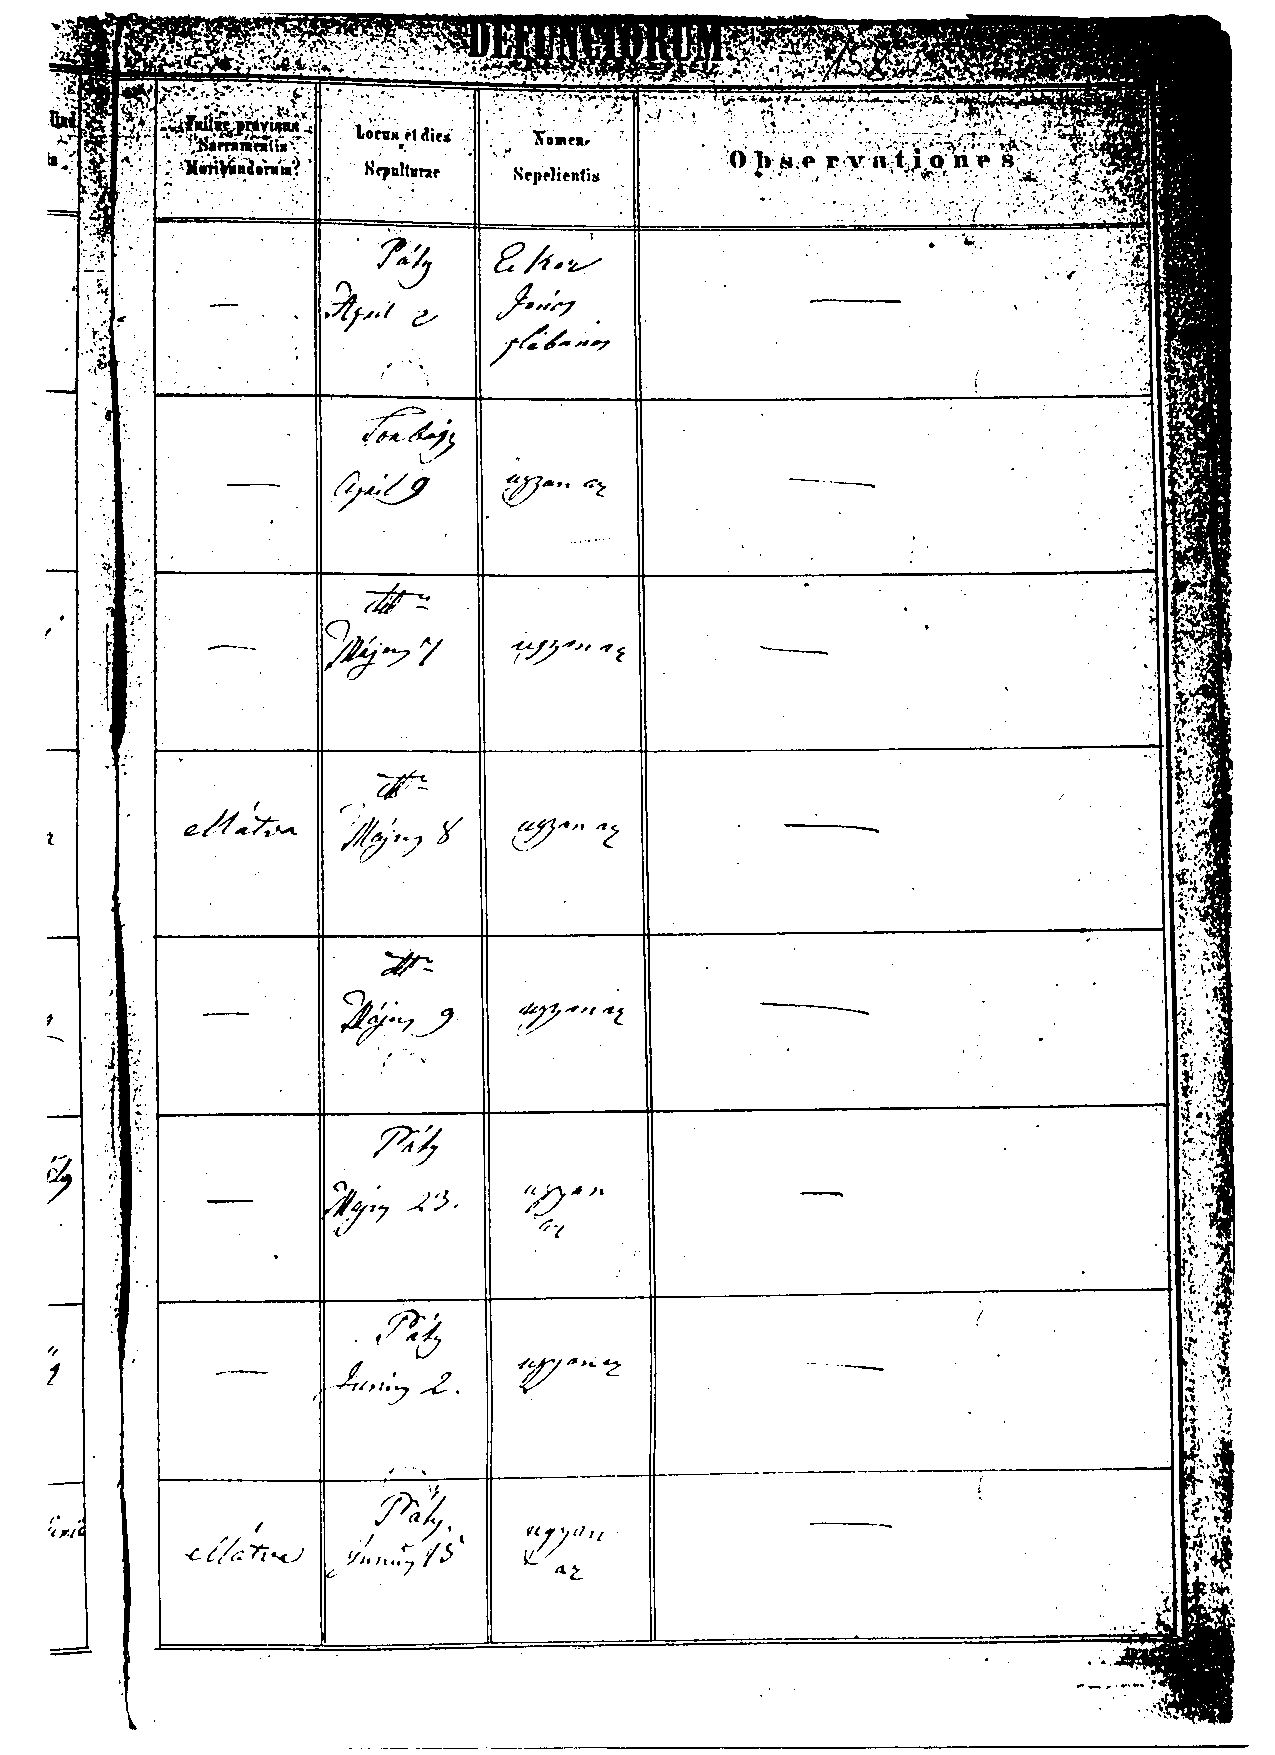 DEFUNCTORUM
Fuitne provisus
Sacramentis
Moribundorum?
Locus et dies
Sepulturae
Nomen
Sepelientis
Observationes
Páty
April 2
János
plébános
—
April 9
ugyan az
—
Május 7
ugyan az
ellátva
Május 8
ugyan az
—
Május 9
ugyan az
—
Páty
Május 23.
ugyan
az
—
Páty
Junius 2.
ugyanaz
ellátva
Páty.
Június 15
ugyan
az